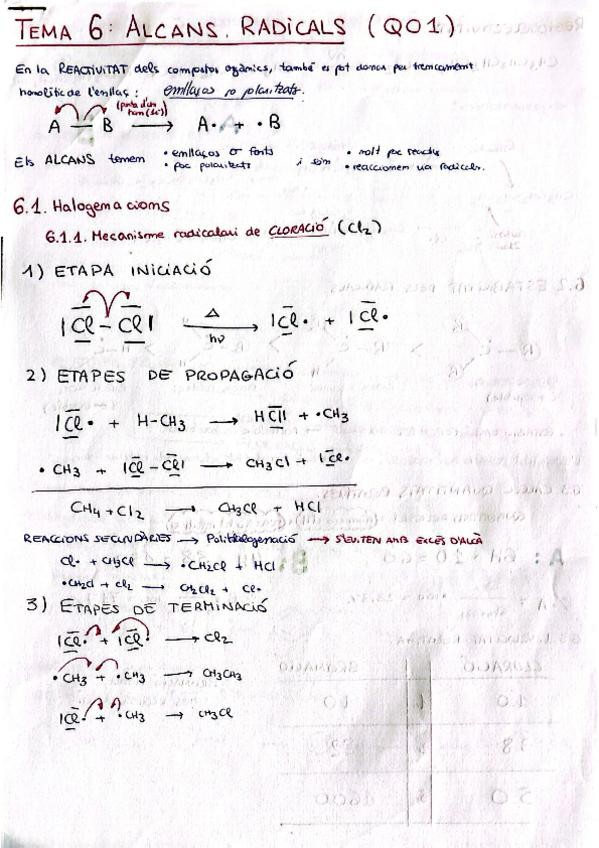 TEMA 6: ALCANS. RADICALS (QO1)
En la REACTIVITAT dels compostos orgànics, també es pot donar per trencament
homolític de l'enllaç: enllaços no polaritzats.
A — B → A· + ·B
Els ALCANS tenen • enllaços σ forts i són • molt poc reactius
• poc polaritzats • reaccionen via radicals.
6.1. Halogenacions
6.1.1. Mecanisme radicalari de CLORACIÓ (Cl2)
1) ETAPA INICIACIÓ
|Cl - Cl| Δ hν → |Cl· + |Cl·
2) ETAPES DE PROPAGACIÓ
|Cl· + H-CH3 → HCl| + ·CH3
·CH3 + |Cl-Cl| → CH3Cl + |Cl·
CH4 + Cl2 → CH3Cl + HCl
REACCIONS SECUNDÀRIES → Polihalogenació → S'EVITEN AMB EXCÉS D'ALCÀ
Cl· + CH3Cl → ·CH2Cl + HCl
·CH2Cl + Cl2 → CH2Cl2 + Cl·
3) ETAPES DE TERMINACIÓ
|Cl· + |Cl· → Cl2
·CH3 + ·CH3 → CH3CH3
|Cl· + ·CH3 → CH3Cl